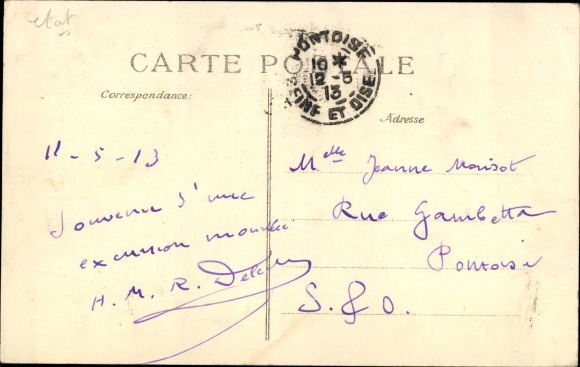 etat
CARTE POSTALE
PONTOISE
10 *
12 - 5
13
SEINE ET OISE
Correspondance:
Adresse
11 - 5 - 13
Souvenir d'une
excursion mouvementée
H. M. R.
Melle Jeanne Morisot
Rue Gambetta
Pontoise
S. & O.